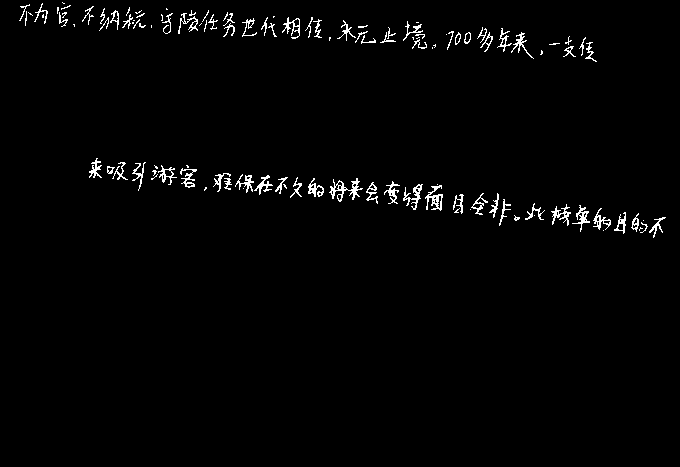 不为官、不纳税，守陵任务世代相传，永无止境。700多年来，一支
来吸引游客，难保在不久的将来会变得面目全非。此榜单的目的不